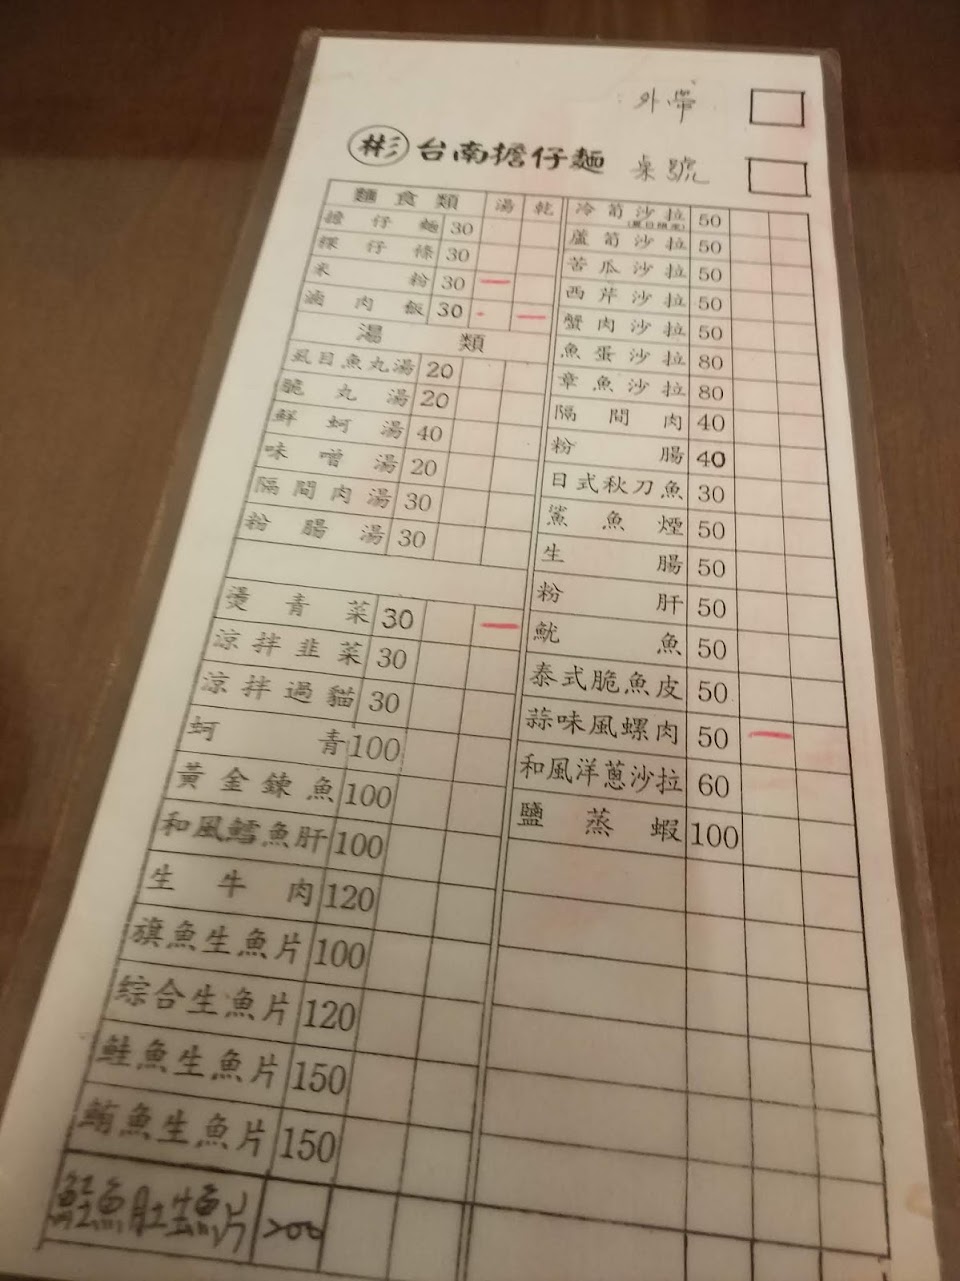 外帶
彬 台南擔仔麵
桌號
麵食類 湯 乾
擔仔麵 30
粿仔條 30
米粉 30
滷肉飯 30
湯類
虱目魚丸湯 20
脆丸湯 20
鮮蚵湯 40
味噌湯 20
隔間肉湯 30
粉腸湯 30
燙青菜 30
涼拌韭菜 30
涼拌過貓 30
蚵青 100
黃金鍊魚 100
和風鱈魚肝 100
生牛肉 120
旗魚生魚片 100
綜合生魚片 120
鮭魚生魚片 150
鮪魚生魚片 150
鮭魚肚生魚片 200
冷筍沙拉 50
蘆筍沙拉 50
苦瓜沙拉 50
西芹沙拉 50
蟹肉沙拉 50
魚蛋沙拉 80
章魚沙拉 80
隔間肉 40
粉腸 40
日式秋刀魚 30
鯊魚煙 50
生腸 50
粉肝 50
魷魚 50
泰式脆魚皮 50
蒜味風螺肉 50
和風洋蔥沙拉 60
鹽蒸蝦 100